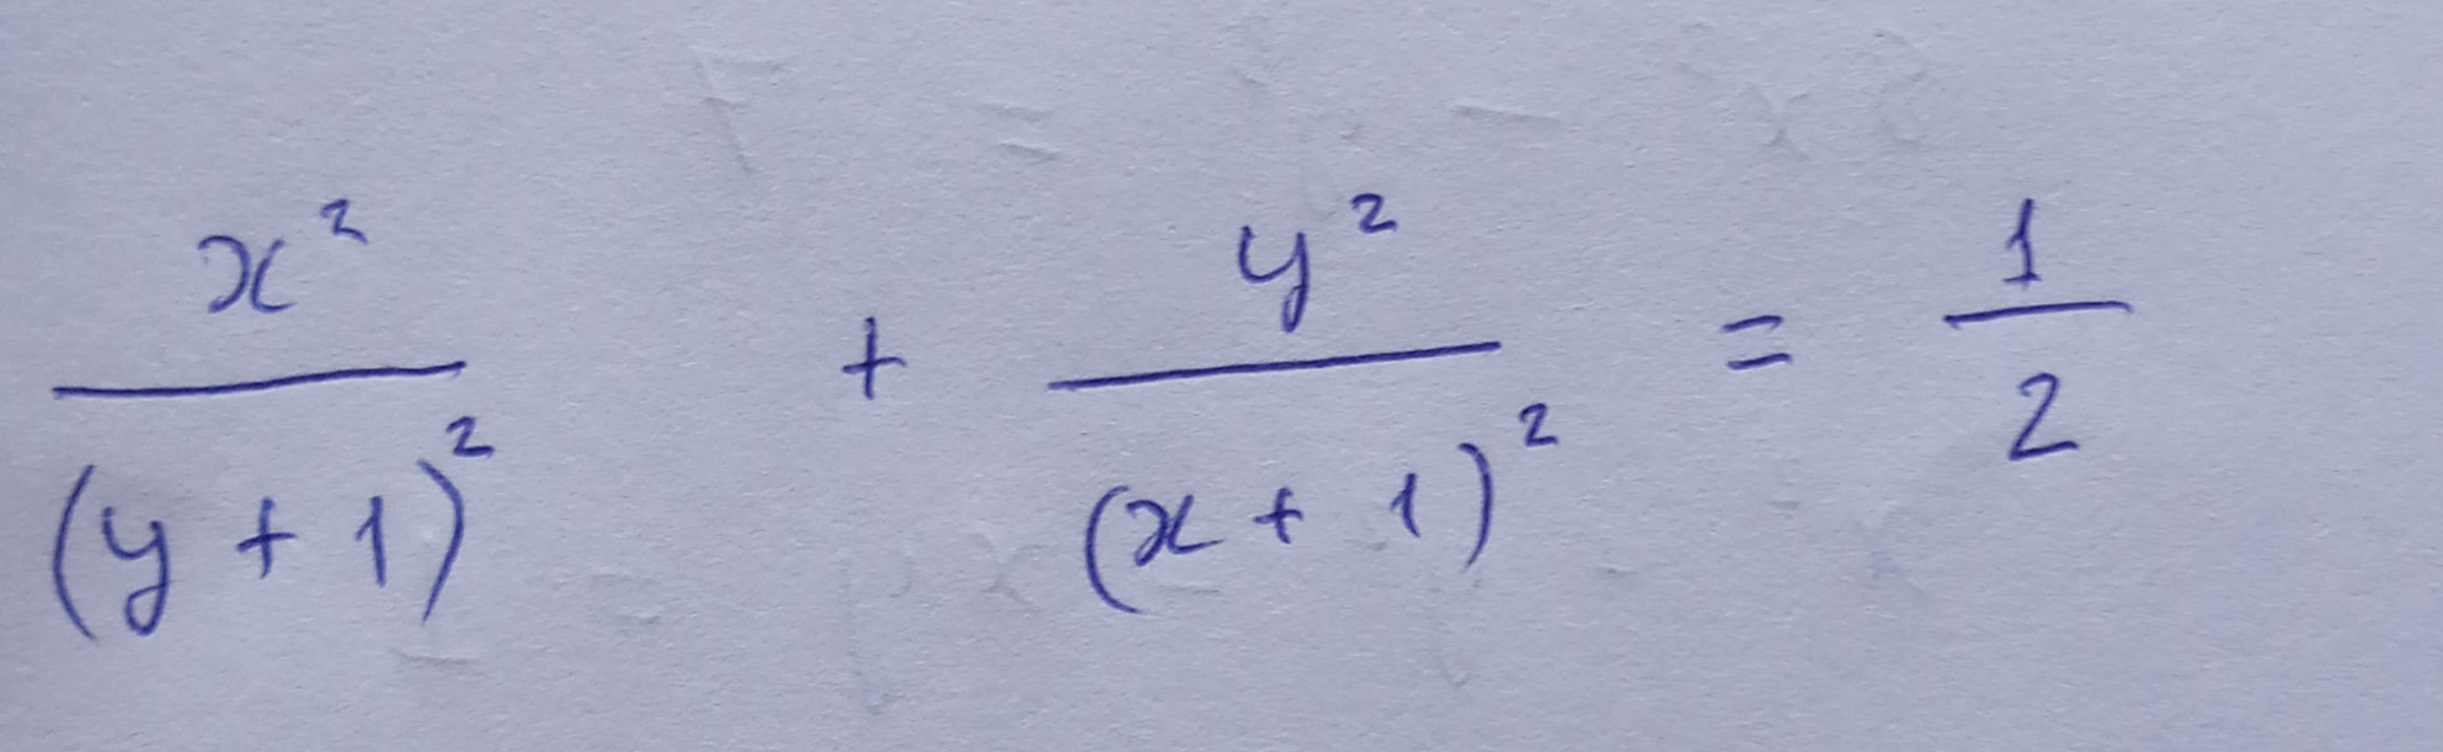 x²/(y + 1)² + y²/(x + 1)² = 1/2